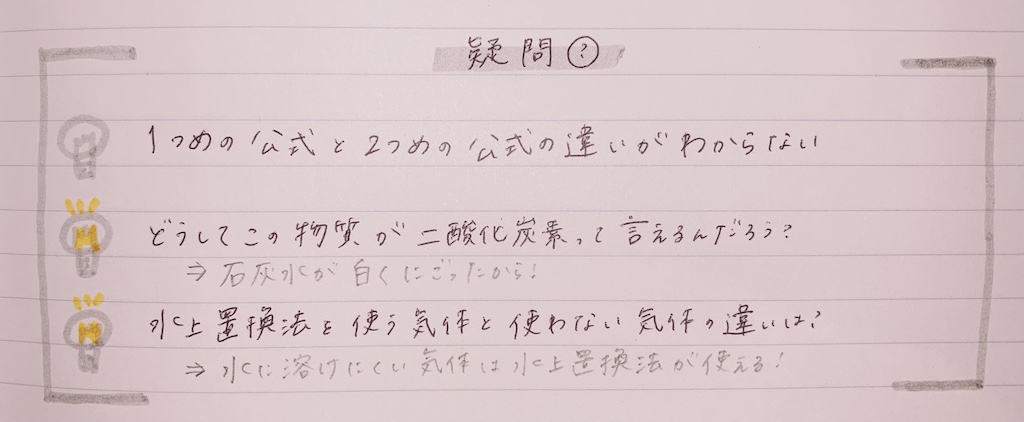 疑問?
1つめの公式と2つめの公式の違いがわからない
どうしてこの物質が二酸化炭素って言えるんだろう?
⇒ 石灰水が白くにごったから!
水上置換法を使う気体と使わない気体の違いは?
⇒ 水に溶けにくい気体は水上置換法が使える!